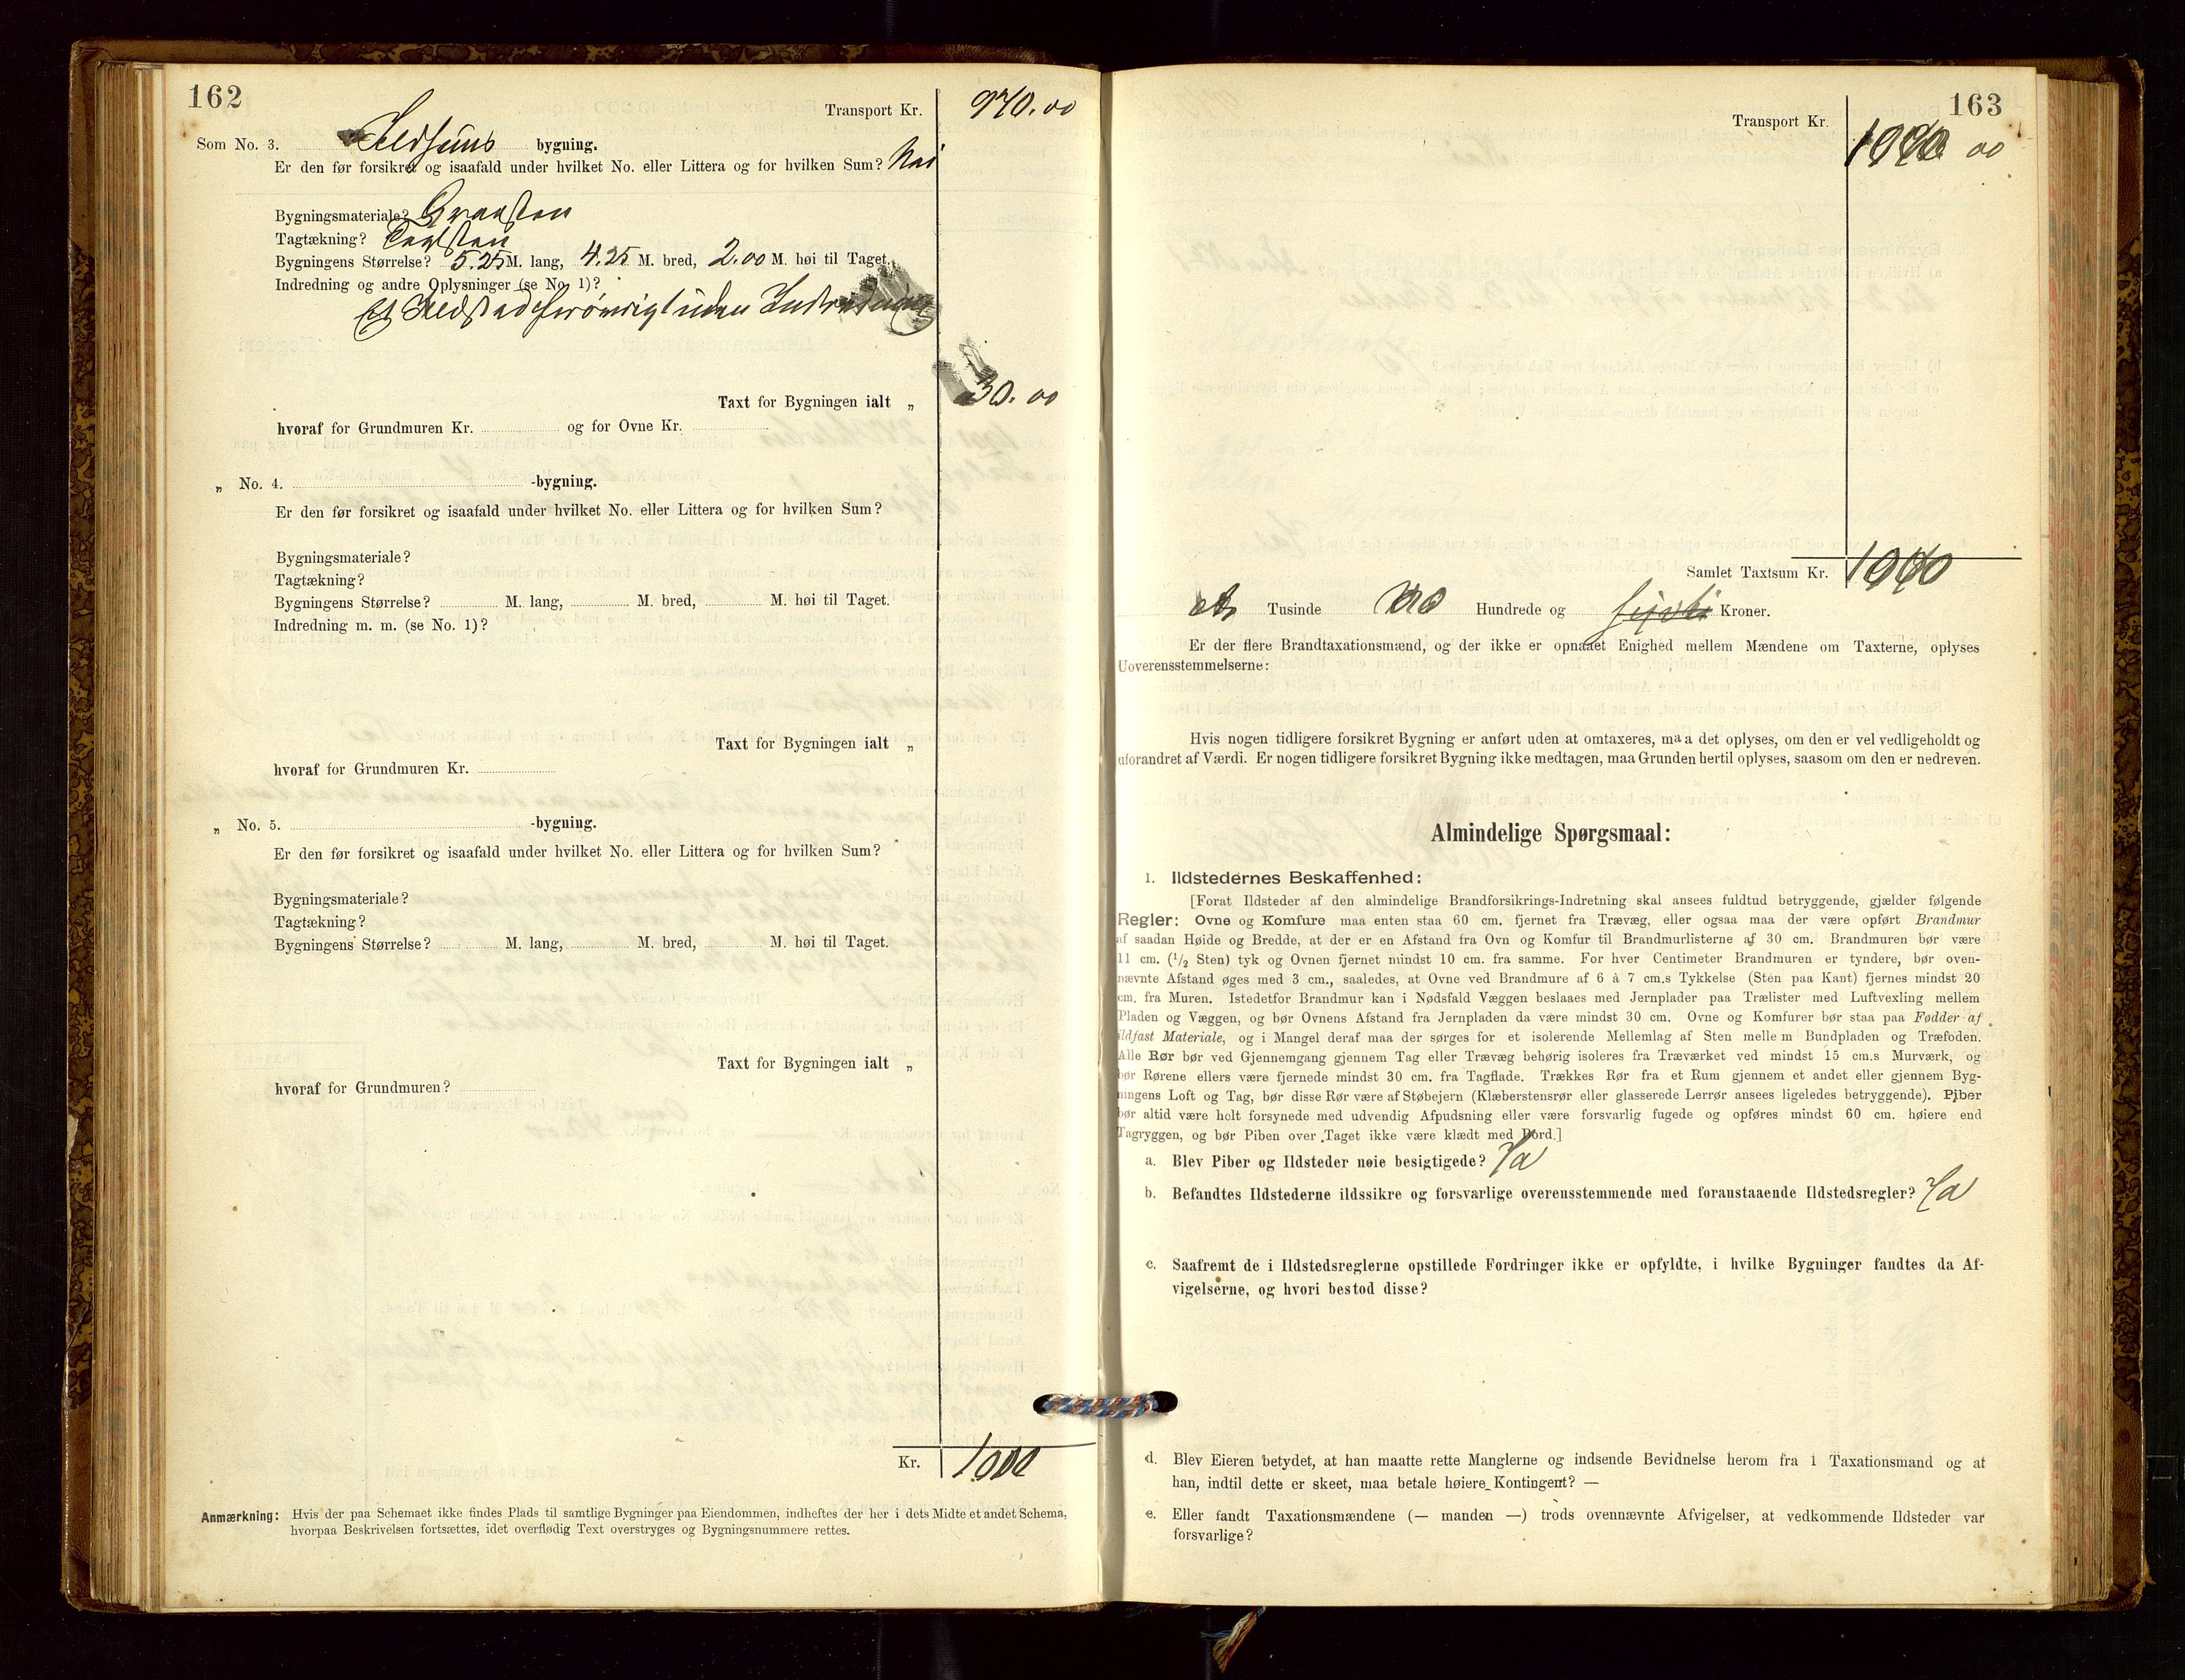 162
Transport Kr. 970.00
Som No. 3. Ildhuus bygning.
Er den før forsikret og isaafald under hvilket No. eller Littera og for hvilken Sum? Nei
Bygningsmateriale? Graasten
Tagtækning? Taglsten
Bygningens Størrelse? 5.25 M. lang, 4.25 M. bred, 2.00 M. høi til Taget.
Indredning og andre Oplysninger (se No. 1)?
et Ildsted forøvrigt uden Indredning
30.00
Taxt for Bygningen ialt „
hvoraf for Grundmuren Kr. og for Ovne Kr.
„ No. 4. -bygning.
Er den før forsikret og isaafald under hvilket No. eller Littera og for hvilken Sum?
Bygningsmateriale?
Tagtækning?
Bygningens Størrelse? M. lang, M. bred, M. høi til Taget.
Indredning m. m. (se No. 1)?
Taxt for Bygningen ialt „
hvoraf for Grundmuren Kr.
„ No. 5. -bygning.
Er den før forsikret og isaafald under hvilket No. eller Littera og for hvilken Sum?
Bygningsmateriale?
Tagtækning?
Bygningens Størrelse? M. lang, M. bred, M. høi til Taget.
Taxt for Bygningen ialt „
hvoraf for Grundmuren?
Kr. 1000
Anmærkning: Hvis der paa Schemaet ikke findes Plads til samtlige Bygninger paa Eiendommen, indheftes der her i dets Midte et andet Schema,
hvorpaa Beskrivelsen fortsættes, idet overflødig Text overstryges og Bygningsnummere rettes.
163
Transport Kr.
00
Samlet Taxtsum Kr.
et Tusinde Hundrede og Kroner.
Er der flere Brandtaxationsmænd, og der ikke er opnaaet Enighed mellem Mændene om Taxterne, oplyses
Uoverensstemmelserne:
Hvis nogen tidligere forsikret Bygning er anført uden at omtaxeres, maa det oplyses, om den er vel vedligeholdt og
uforandret af Værdi. Er nogen tidligere forsikret Bygning ikke medtagen, maa Grunden hertil oplyses, saasom om den er nedreven.
Almindelige Spørgsmaal:
1. Ildstedernes Beskaffenhed:
[Forat Ildsteder af den almindelige Brandforsikrings-Indretning skal ansees fuldtud betryggende, gjælder følgende
Regler: Ovne og Komfure maa enten staa 60 cm. fjernet fra Trævæg, eller ogsaa maa der være opført Brandmur
af saadan Høide og Bredde, at der er en Afstand fra Ovn og Komfur til Brandmurlisterne af 30 cm. Brandmuren bør være
11 cm. (1/2 Sten) tyk og Ovnen fjernet mindst 10 cm. fra samme. For hver Centimeter Brandmuren er tyndere, bør oven-
nævnte Afstand øges med 3 cm., saaledes, at Ovne ved Brandmure af 6 à 7 cm.s Tykkelse (Sten paa Kant) fjernes mindst 20
cm. fra Muren. Istedetfor Brandmur kan i Nødsfald Væggen beslaaes med Jernplader paa Trælister med Luftvexling mellem
Pladen og Væggen, og bør Ovnens Afstand fra Jernpladen da være mindst 30 cm. Ovne og Komfurer bør staa paa Fødder af
ildfast Materiale, og i Mangel deraf maa der sørges for et isolerende Mellemlag af Sten mellem Bundpladen og Træfoden.
Alle Rør bør ved Gjennemgang gjennem Tag eller Trævæg behørig isoleres fra Træværket ved mindst 15 cm.s Murværk, og
bør Rørene ellers være fjernede mindst 30 cm. fra Tagflade. Trækkes Rør fra et Rum gjennem et andet eller gjennem Byg-
ningens Loft og Tag, bør disse Rør være af Støbejern (Klæberstensrør eller glasserede Lerrør ansees ligeledes betryggende). Piber
bør altid være helt forsynede med udvendig Afpudsning eller være forsvarlig fugede og opføres mindst 60 cm. høiere end
Tagryggen, og bør Piben over Taget ikke være klædt med Bord.]
a. Blev Piber og Ildsteder nøie besigtigede? Ja
b. Befandtes Ildstederne ildssikre og forsvarlige overensstemmende med foranstaaende Ildstedsregler? Ja
c. Saafremt de i Ildstedsreglerne opstillede Fordringer ikke er opfyldte, i hvilke Bygninger fandtes da Af-
vigelserne, og hvori bestod disse?
d. Blev Eieren betydet, at han maatte rette Manglerne og indsende Bevidnelse herom fra 1 Taxationsmand og at
han, indtil dette er skeet, maa betale høiere Kontingent? —
e. Eller fandt Taxationsmændene (— manden —) trods ovennævnte Afvigelser, at vedkommende Ildsteder var
forsvarlige?